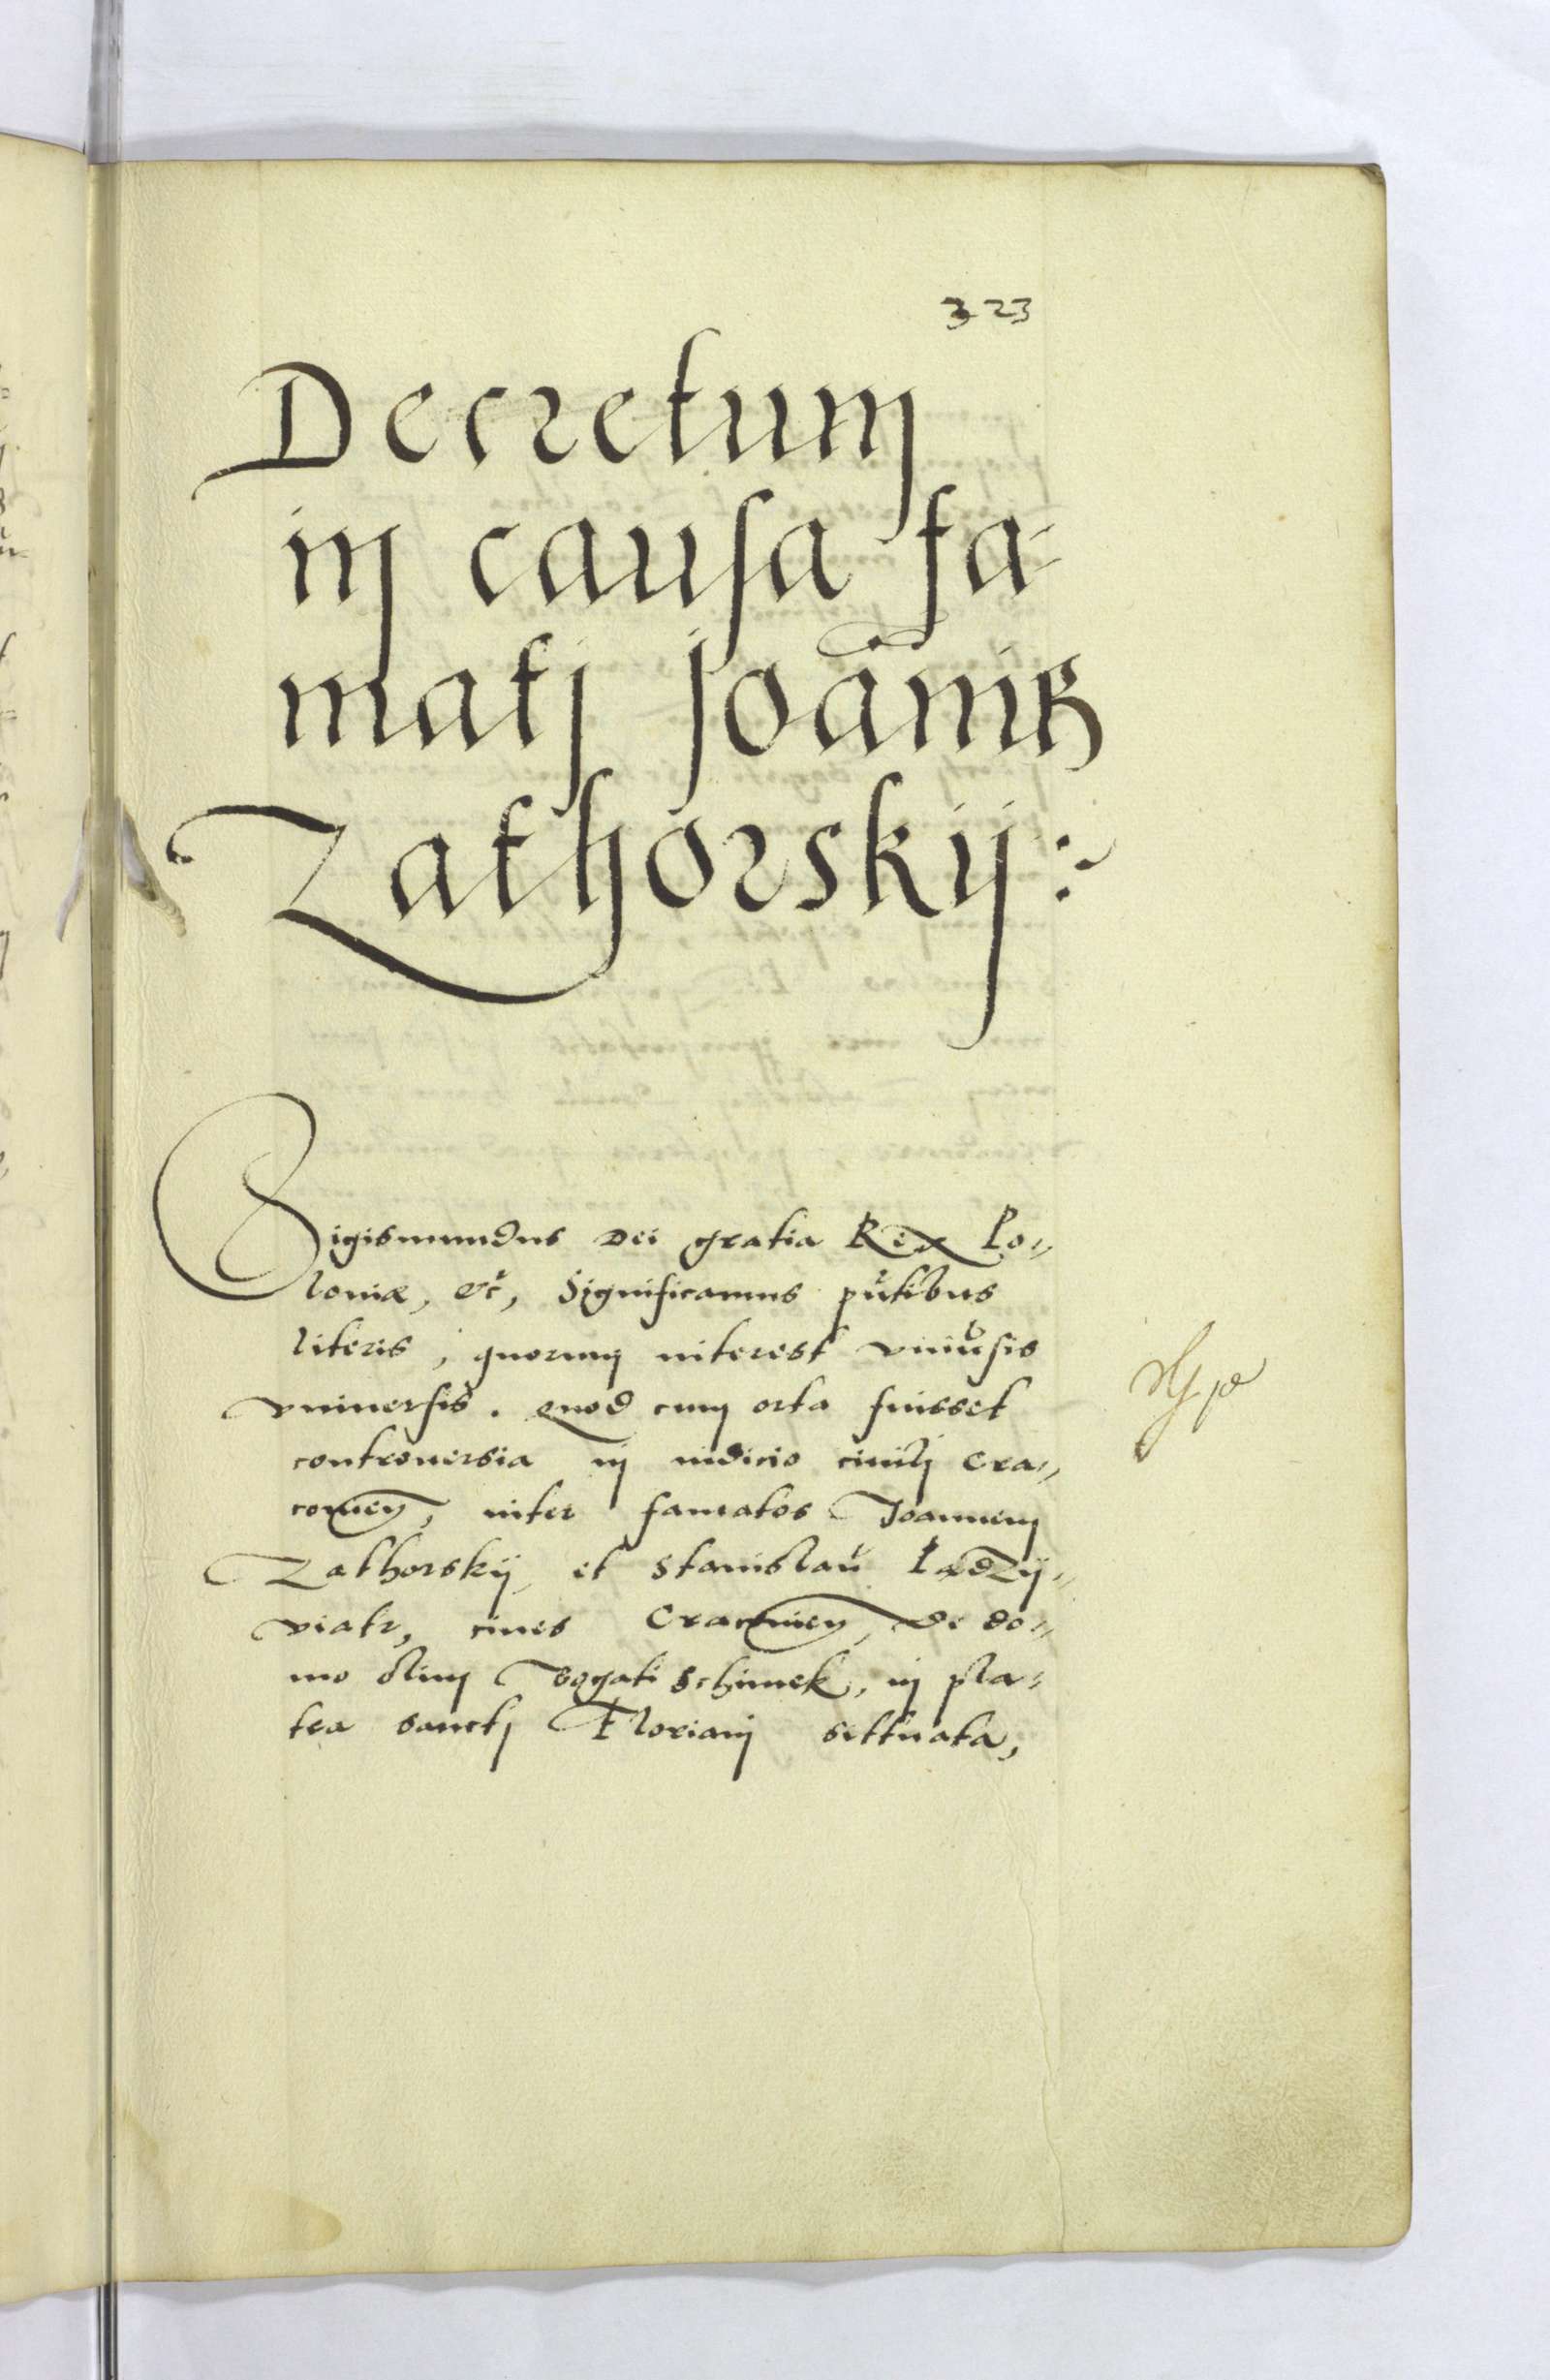 323
Decretum
in causa fa-
mati Joānis
Zathorskij:
Sigismundus Dei gratia Rex Po-
loniæ, etc̃, Significamus pñtibus
literis, quorum interest vniũsis
vniuersis. Quod cum orta fuisset
controuersia in iudicio ciuili Cra-
couien̄, inter famatos Joannem
Zathorskij, et Stanislaũ Padzij-
viatr, ciues Cracouien̄, de do-
mo olim Bogati Schimek, in pla-
tea sancti Floriani sittuata,